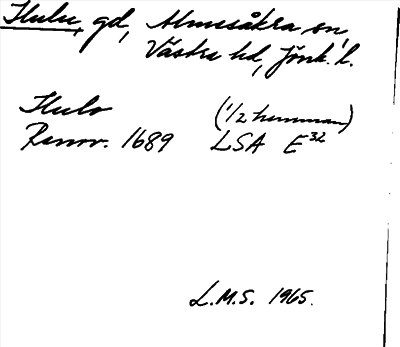 Hulu, gd, Almesåkra sn,
Västra hd, Jönk. l.
Hulo (1/2 hemman)
Renov. 1689 LSA E32
L.M.S. 1965.